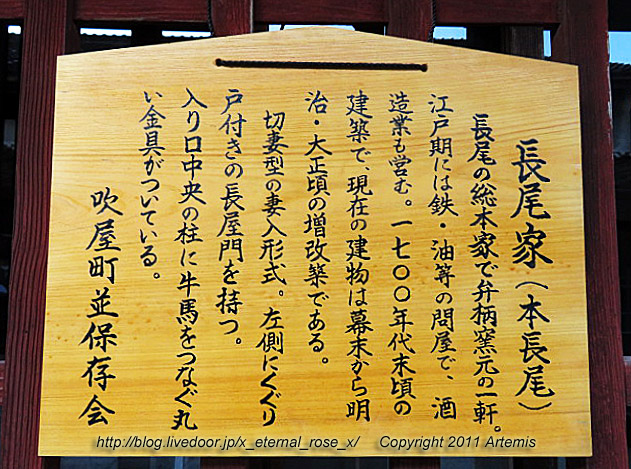 長尾家(本長尾)
長尾の総本家で弁柄窯元の一軒。
江戸期には鉄・油等の問屋で、酒
造業も営む。一七〇〇年代末頃の
建築で、現在の建物は幕末から明
治・大正頃の増改築である。
切妻型の妻入形式。左側にくぐり
戸付きの長屋門を持つ。
入り口中央の柱に牛馬をつなぐ丸
い金具がついている。
吹屋町並保存会
http://blog.livedoor.jp/x_eternal_rose_x/ Copyright 2011 Artemis